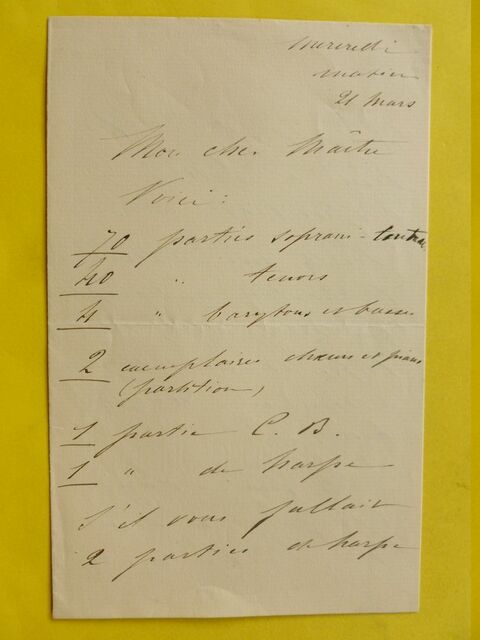 mercredi
matin
21 mars
Mon cher Maître
Voici :
70 parties soprani - contral
40 " tenors
4 " barytons et basses
2 exemplaires choeurs et piano
(partition)
1 partie C. B.
1 " de harpe
S'il vous fallait
2 parties de harpe